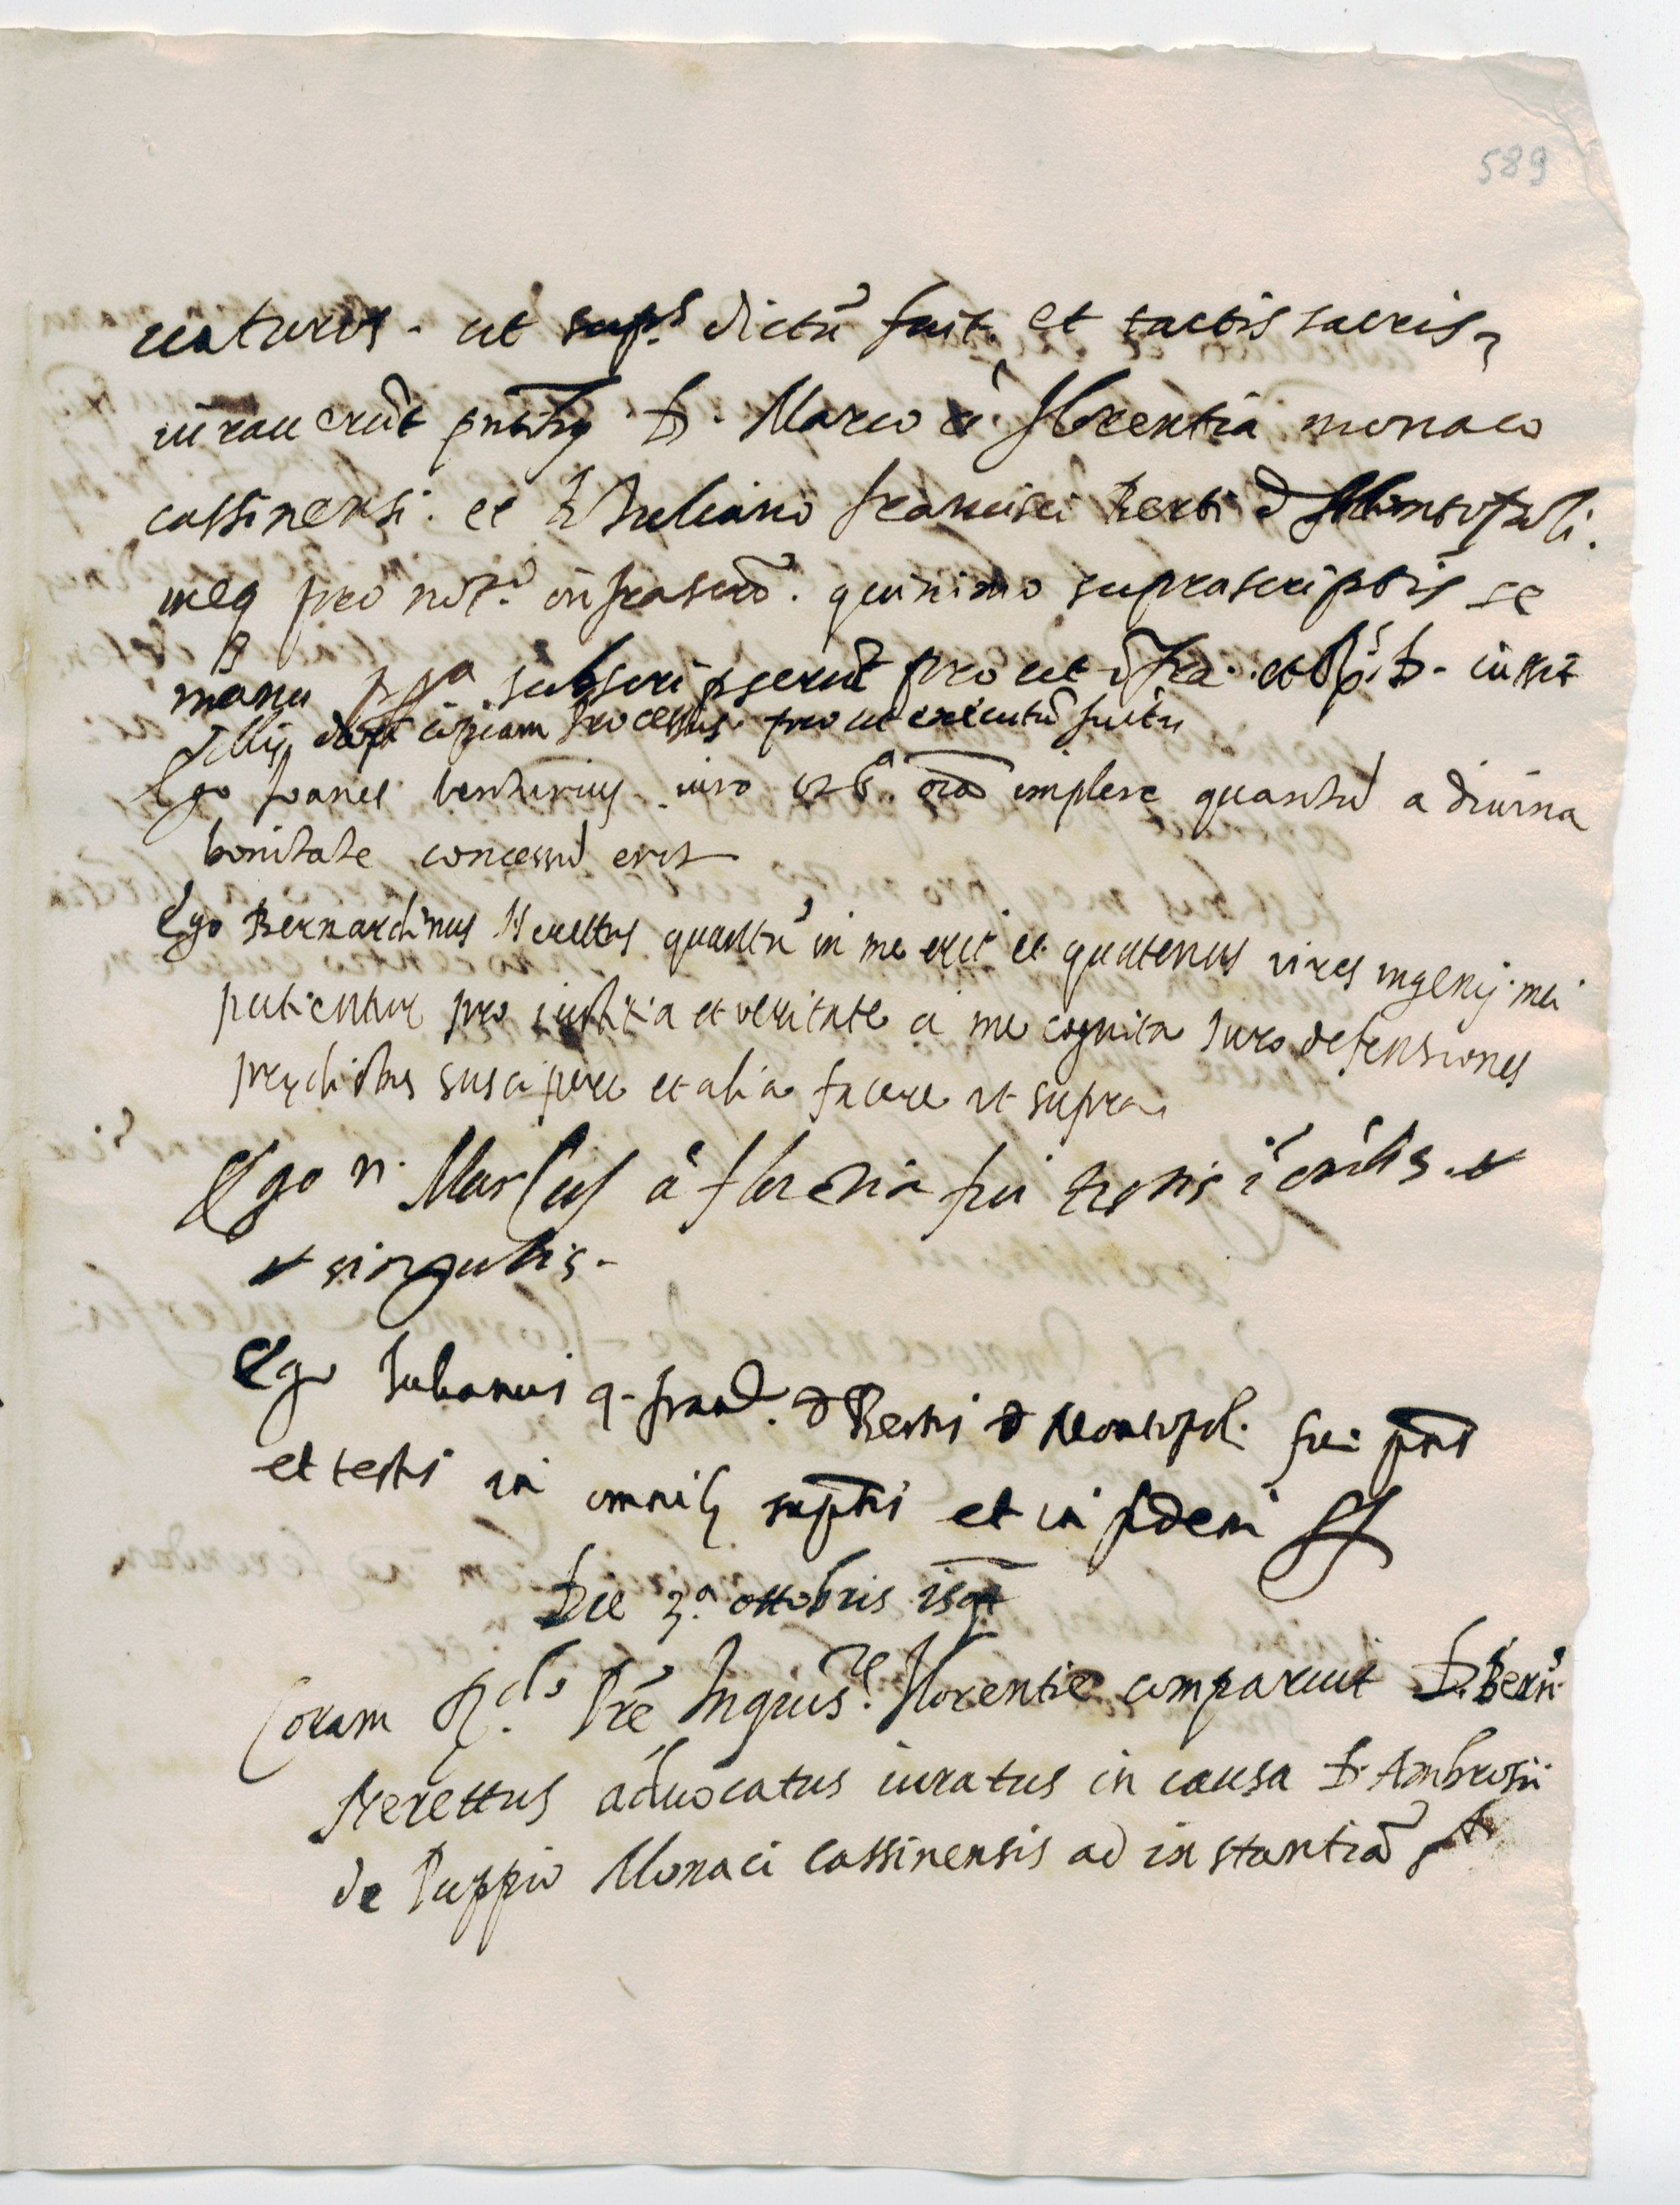 589
uaturos - ut sup.s dictū fuit. et tactis sacris
iurauerūt pn̄tibꝫ D. Marco à Florentia monaco
cassinensi. et Iuliano francisci Berti d Montopoli.
meq pro not.o infrascr̄o. quinimo suprascriptis se
manu ppa subscripserūt pro ut īfra. et R.P.D. iussit
illis dari copiam processus. pro ut executū fuit
Ego Joanes benturius iuro oīa implere quantū a diuina
bonitate concessū erit
Ego Bernardinus Nerettus quantū in me erit et quatenus vires ingenij mei
patientur pro iustitia et veritate a me cognita Juro defensiones
prędictas suscipere et alia facere ut supra.
Ego D. Marcus à florētia fui testis ī oībus et
et singulis.
Ego Julianus q. franc. d Bertis d Montopoli fui pn̄s
et testis in omnibꝫ supr̄tis et in fidem
Die 3.a ottobris
Coram R.do Prē Inquis.re Florentię comparuit D. Bern.
Nerettus aduocatus iuratus in causa D. Ambrosii
de Puppio Monaci Cassinensis ad instantiā